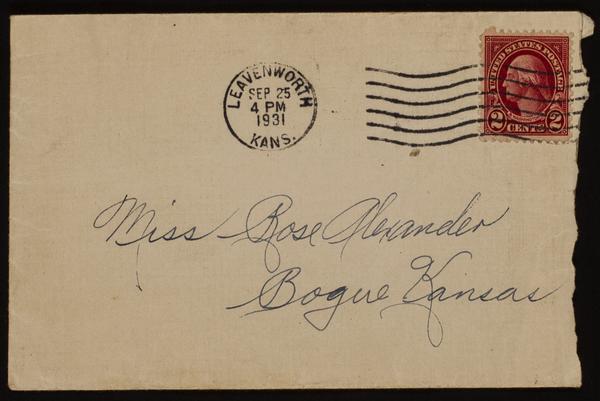 LEAVENWORTH
SEP 25
4 PM
1931
KANS.
UNITED STATES POSTAGE
2 CENTS 2
Miss Rose Alexander
Bogue Kansas